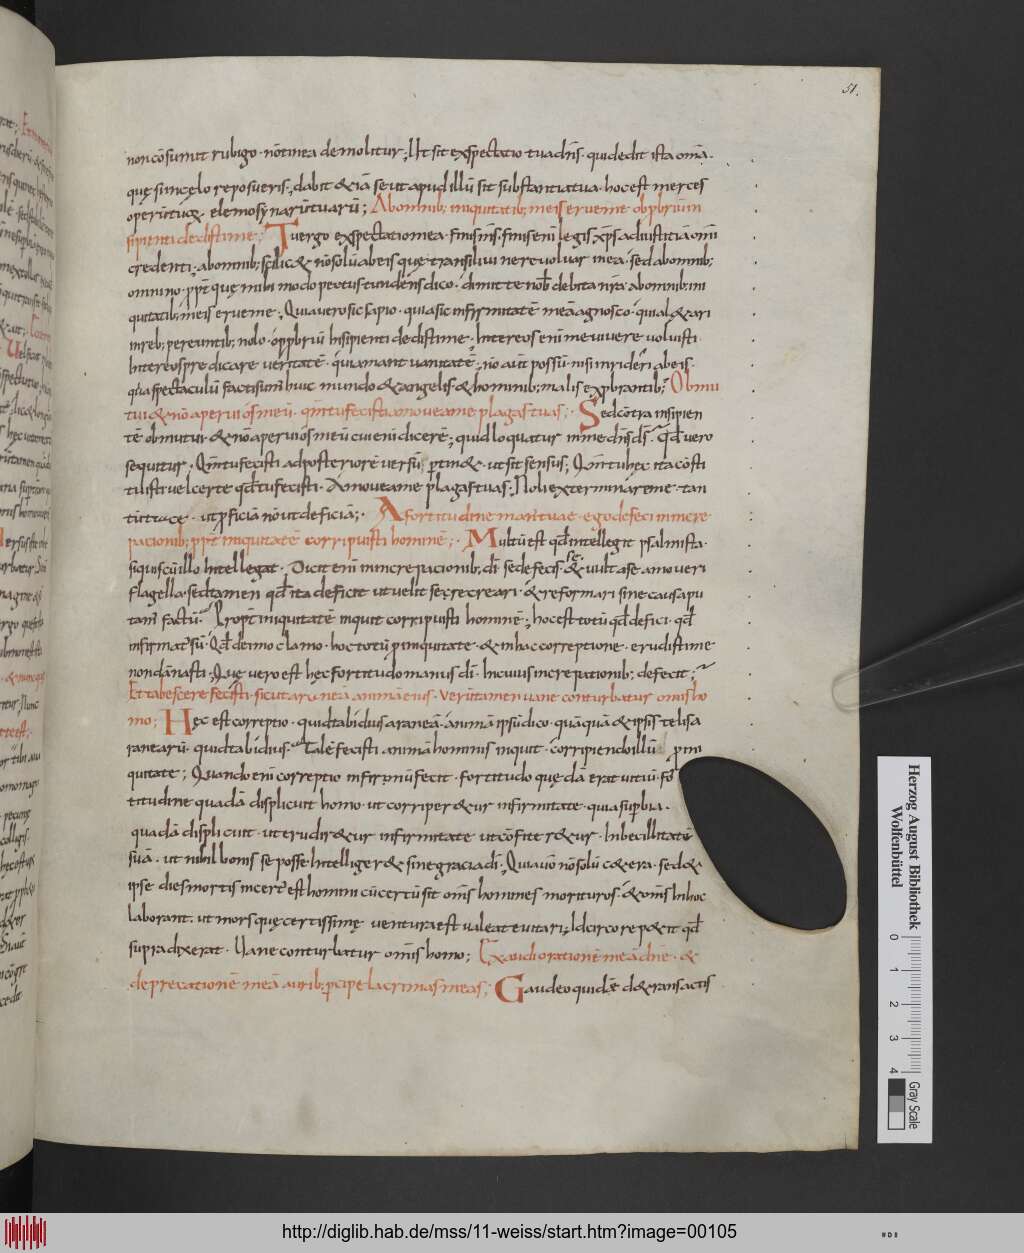 51.
non cōsumit rubigo · nō tinea demolitur; Ut sit exspectatio tua dn̄s · qui dedit ista omā ·
quę si in cęlo reposueris; dabit & iā se ut apud illū sit substantia tua · hoc est merces
operū tuoꝝ · elemosynarū tuarū; Ab omnib; iniquitatib; meis erue me obpbrium
sipienti dedisti me; Tu ergo exspectatio mea · finis m̄s · finis enī legis xp̄s ad iustitiā om̄i
credenti; ab omnib; scilic& nō solū ab eis quę transilui ne revolvar in ea · sed ab omnib;
omnino · ppt̄ quę mihi modo pectus tundens dico · dimitte nob̄ debita nr̄a Ab omnib; ini
quitatib; meis erue me; Quia vero sic sapio · quia sic infirmitatē meā agnosco · q̇ual& ari
in reb; pereuntib; nolo · óppbriū Insipienti dedisti me · Inter eos enī me vivere voluisti ·
Inter eos predicare veritatē · qui amant vanitatē; nō aūt possū · nisi inrideri ab eis ·
quia spectaculū facti sum̄ huic mundo & angelis & hominib; malis expbrantib; Obmu
tui & nō aperui os meū · qm̄ tu fecisti amove a me plagas tuas; Sed contra insipien
tē obmutui · & nō aperui os meū cui enī dicerē; quid loquatur in me dn̄s ds̄ · qd̄ vero
sequitur · Qm̄ tu fecisti ad posteriorē versū ptin& · ut sit sensus; Qm̄ tu hec ita cōsti
tuisti vel certe qd̄ tu fecisti · Amove a me plagas tuas · Noli exterminare me · tan
tū tracte · ut pficiā nō ut deficiā; A fortitudine manꝰ tuae · ego defeci in incre
pacionib; ppt̄ iniquitatē corripuisti hominē; Multū est qd̄ intellegit psalmista ·
si quis cū illo Intellegat · Dicit enī in increpacionib; di se defecis se · & vult a se amoveri
flagella · sed tamen qd̄ ita deficit ut velit se recreari · & reformari sine causa pu
tam̄ factū · Propt̄ iniquitatē inquit corripuisti hominē; hoc est totū qd̄ defici · qd̄
infirmatꝰ sū · Qd̄ de imo clamo · hoc totū p iniquitate · & in hac correptione · erudisti me
non dānasti; Quę vero est hęc fortitudo manus di · In cuius increpationib; defecit;
Et tabescere fecisti · sicut araneā animā eius · verūtamen vane conturbatur omnis ho
mo; Hęc est correptio · quid tabidius araneā · animā ipsū dico · quāquā & ipsis telis a
ranearū · quid tabidius · Talē fecisti animā hominis inquit · corripiendo illū p ini
quitate; Quando enī correptio infirmū fecit · fortitudo quędā erat vitiū · for
titudine quadā displicuit homo · ut corriper&ur infirmitate · quia supbia ·
quadā displicuit · ut erudir&ur infirmitate ut cōfiter&ur · Inbecillitatē
suā · ut nihil bonis se posse Intelliger& sine gracia di; Quia vō nō solū c&era · sed &
ipse dies mortis incertꝰ est homini cū certū sit om̄s homines morituros · & om̄s In hoc
laborant · ut mors quę certissime ventura est valeat evitari; Idcirco rep&it qd̄
supra dixerat · Vane conturbatur omīs homo; Exaudi orationē meā dn̄e · &
deprecationē meā aurib; pcipe lacrimas meas; Gaudeo quidē d& ransactis
Herzog August Bibliothek
Wolfenbüttel
0 1 2 3 4
Gray Scale
http://diglib.hab.de/mss/11-weiss/start.htm?image=00105